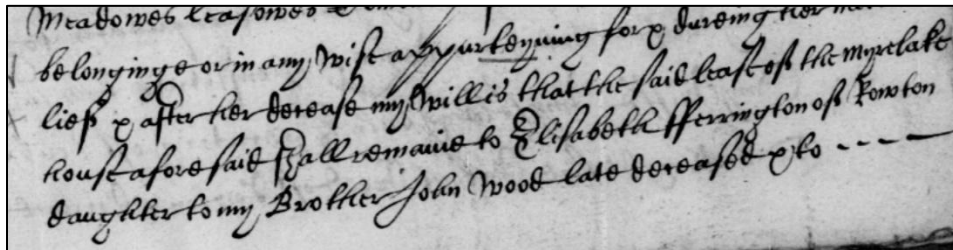 Meadowes leasowes
belonginge or in any wise appurteyning for & dureing her
lief & after her decease my will is that the said lease of the Myrelake
house afore said shall remaine to Elisabeth fferrington of Rowton
daughter to my Brother John Wood late deceased & to - - - -